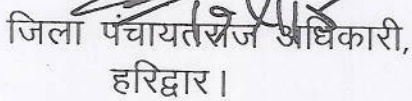 जिला पंचायतराज अधिकारी,
हरिद्वार।